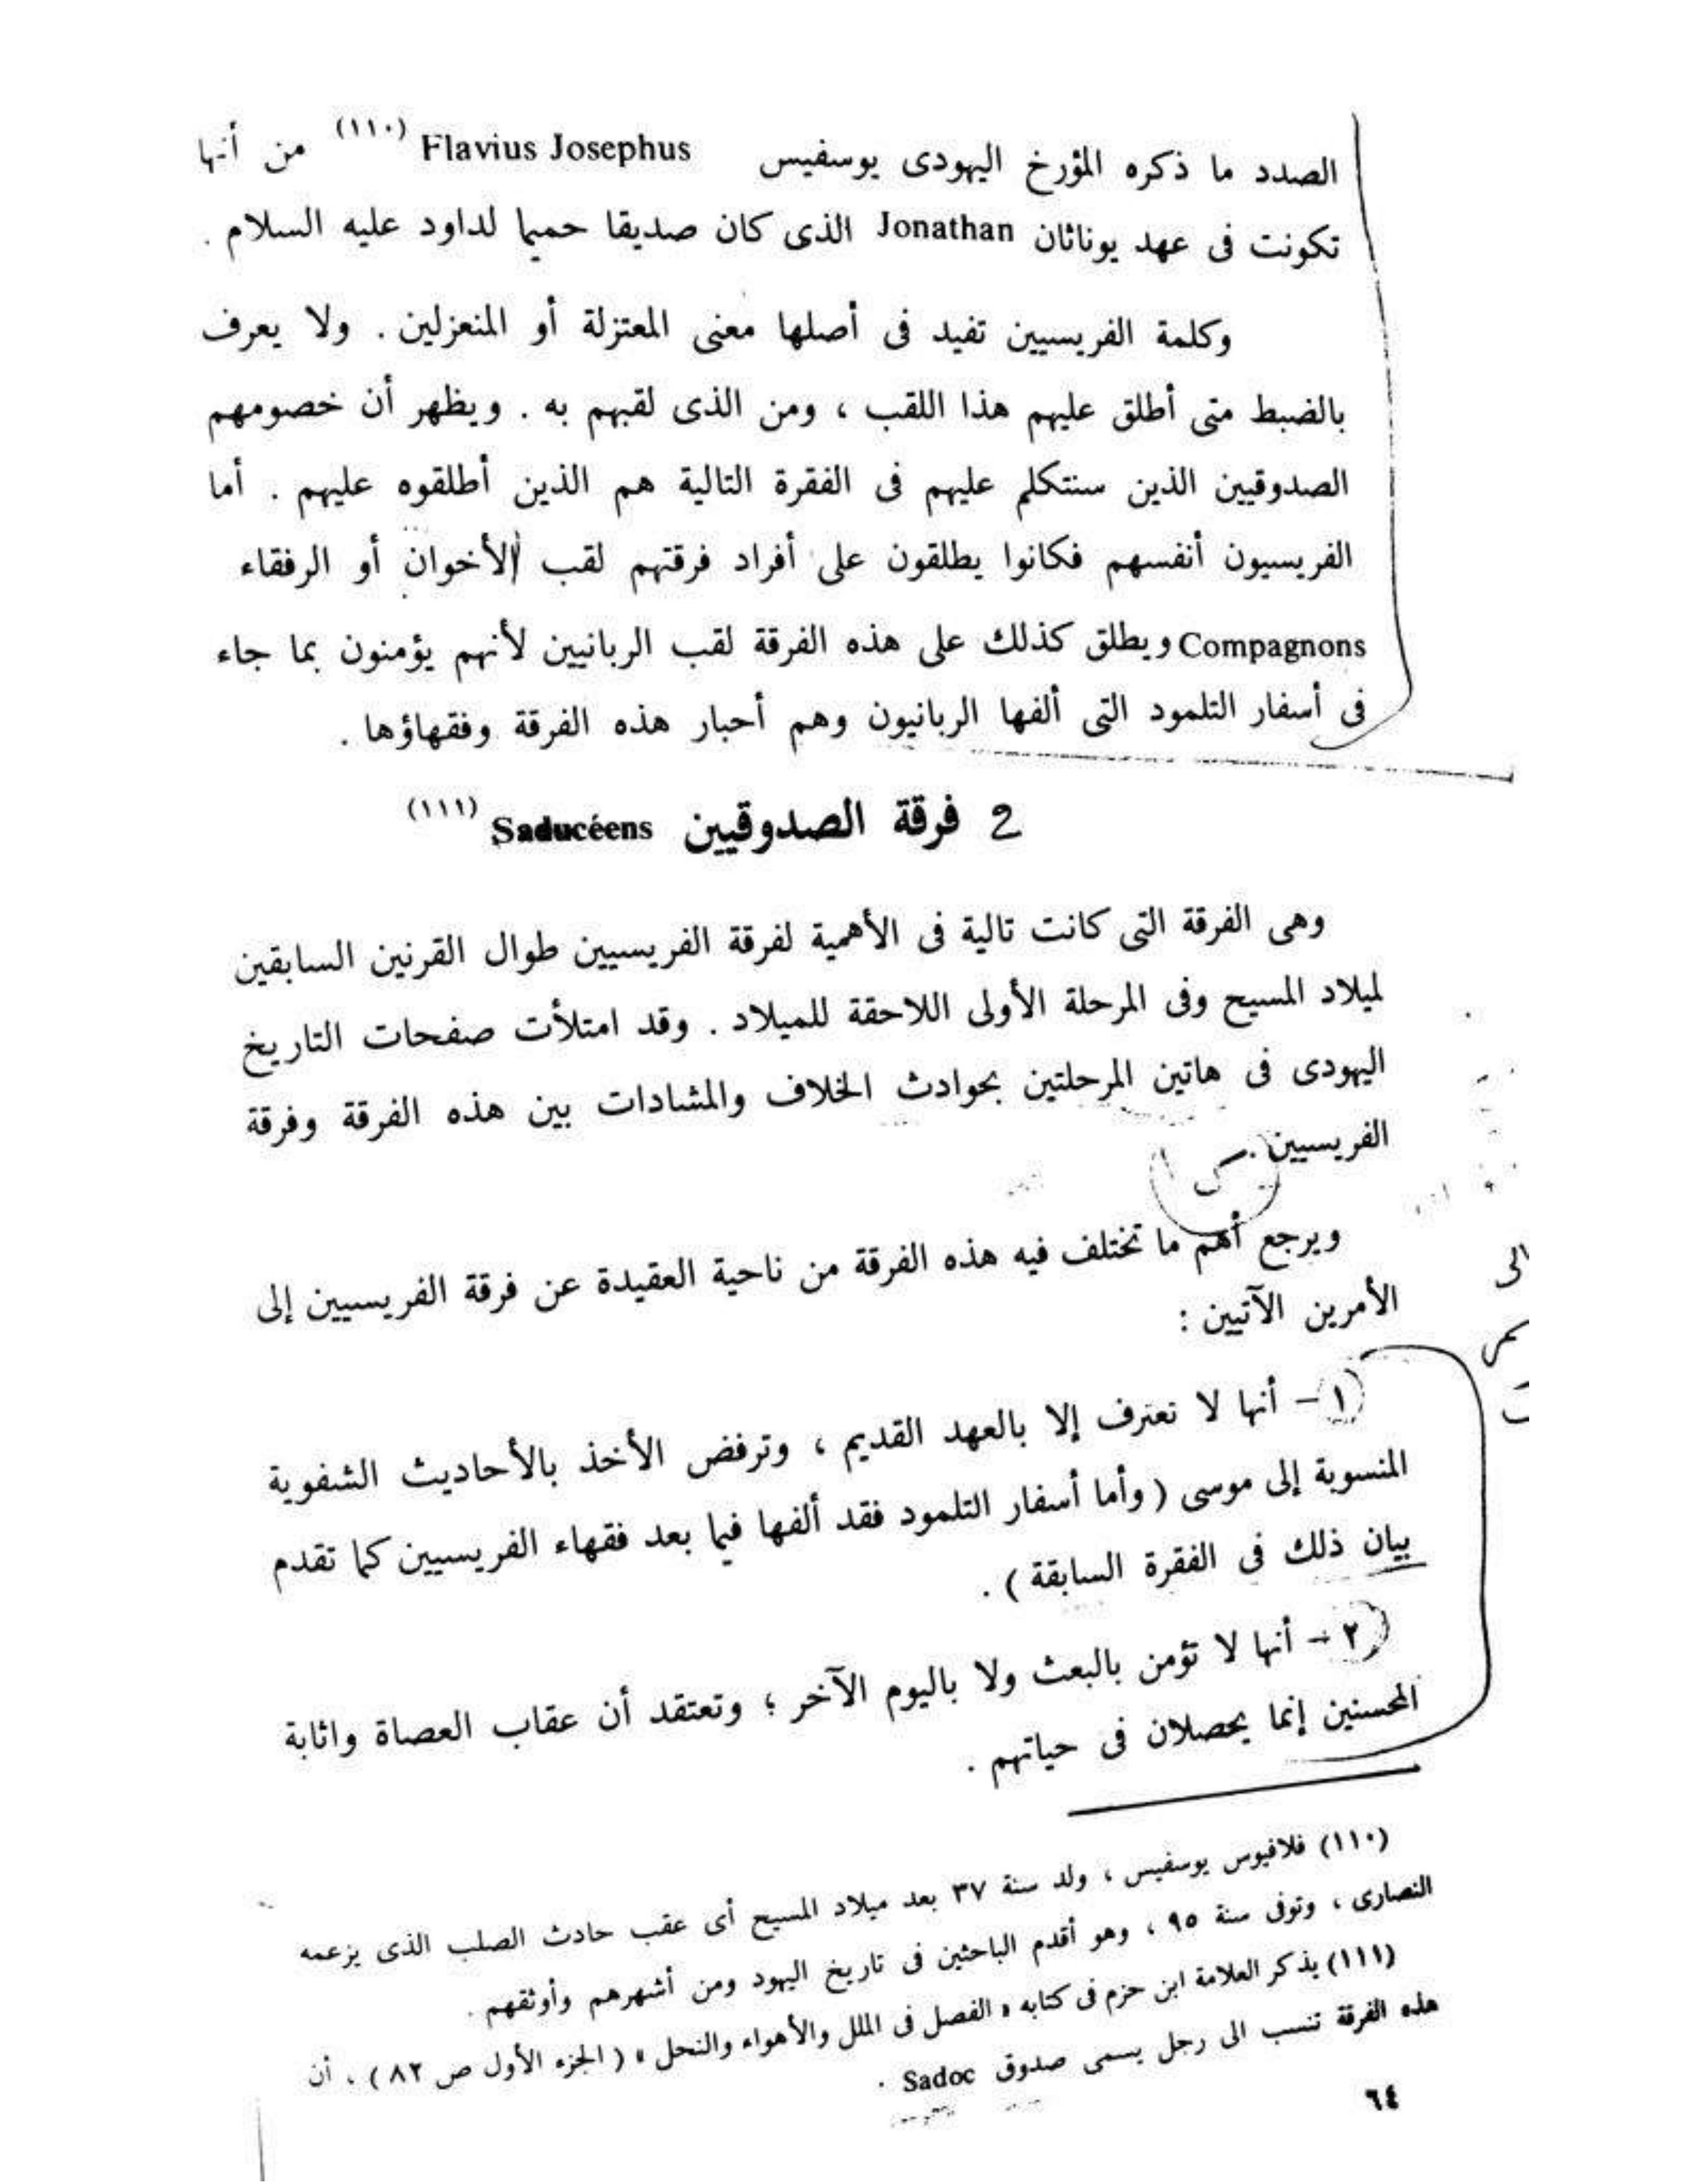 الصدد ما ذكره المؤرخ اليهودى يوسفيس Flavius Josephus (١١٠) من أنها
تكونت فى عهد يوناثان Jonathan الذى كان صديقا حميما لداود عليه السلام .
وكلمة الفريسيين تفيد فى أصلها معنى المعتزلة أو المنعزلين . ولا يعرف
بالضبط متى أطلق عليهم هذا اللقب ، ومن الذى لقبهم به . ويظهر أن خصومهم
الصدوقيين الذين سنتكلم عليهم فى الفقرة التالية هم الذين أطلقوه عليهم . أما
الفريسيون أنفسهم فكانوا يطلقون على أفراد فرقتهم لقب الأخوان أو الرفقاء
Compagnons ويطلق كذلك على هذه الفرقة لقب الربانيين لأنهم يؤمنون بما جاء
فى أسفار التلمود التى ألفها الربانيون وهم أحبار هذه الفرقة وفقهاؤها .
2 فرقة الصدوقيين Saducéens (١١١)
وهى الفرقة التى كانت تالية فى الأهمية لفرقة الفريسيين طوال القرنين السابقين
لميلاد المسيح وفى المرحلة الأولى اللاحقة للميلاد . وقد امتلأت صفحات التاريخ
اليهودى فى هاتين المرحلتين بحوادث الخلاف والمشادات بين هذه الفرقة وفرقة
الفريسيين .
ويرجع أهم ما تختلف فيه هذه الفرقة من ناحية العقيدة عن فرقة الفريسيين إلى
الأمرين الآتيين :
١ – أنها لا تعترف إلا بالعهد القديم ، وترفض الأخذ بالأحاديث الشفوية
المنسوبة إلى موسى ( وأما أسفار التلمود فقد ألفها فيما بعد فقهاء الفريسيين كما تقدم
بيان ذلك فى الفقرة السابقة ) .
٢ – أنها لا تؤمن بالبعث ولا باليوم الآخر ؛ وتعتقد أن عقاب العصاة واثابة
المحسنين إنما يحصلان فى حياتهم .
(١١٠) فلافيوس يوسفيس ، ولد سنة ٣٧ بعد ميلاد المسيح أى عقب حادث الصلب الذى يزعمه
النصارى ، وتوفى سنة ٩٥ ، وهو أقدم الباحثين فى تاريخ اليهود ومن أشهرهم وأوثقهم .
(١١١) يذكر العلامة ابن حزم فى كتابه « الفصل فى الملل والأهواء والنحل » ( الجزء الأول ص ٨٢ ) ، أن
هذه الفرقة تنسب الى رجل يسمى صدوق Sadoc .
٦٤